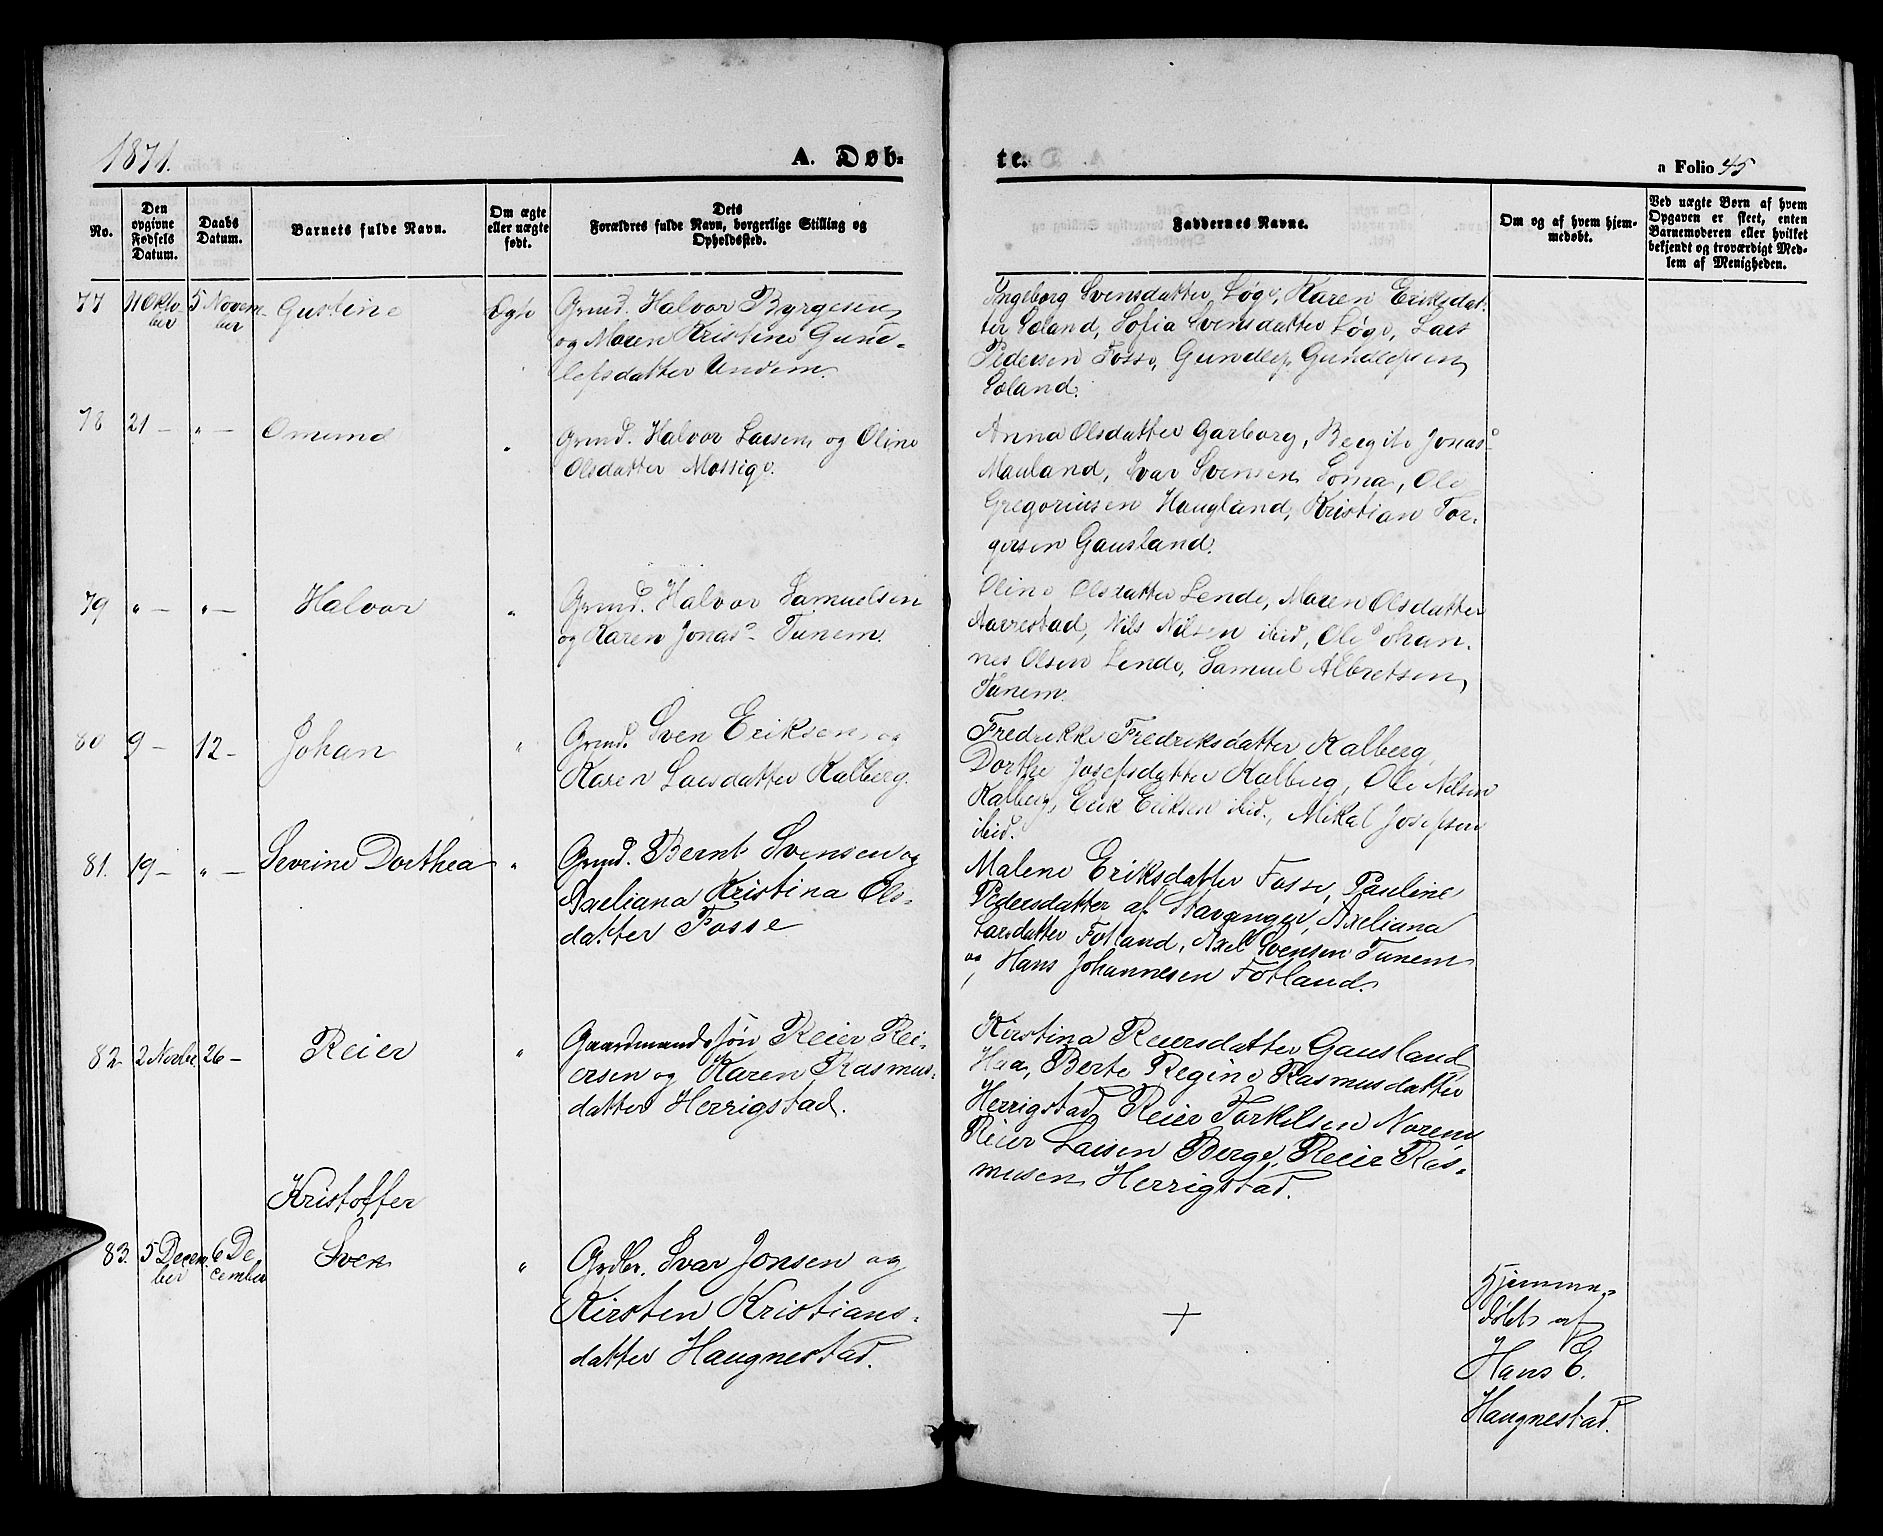 1871.
A. Døb-
te.
a Folio 45
No.
Den opgivne Fødsels Datum.
Daabs Datum.
Barnets fulde Navn.
Om ægte eller uægte født.
Dets
Forældres fulde Navn, borgerlige Stilling og
Opholdssted.
Faddernes Navne.
Om og af hvem hjem-
medøbt.
Ved uægte Børn af hvem
Opgaven er skeet, enten
Barnemoderen eller hvilket
bekjendt og troværdigt Med-
lem af Menigheden.
77 11 Okto 5 Novem Gustine Ægte Grmd. Halvor Byrgesen
ber ber og Maren Kristine Gund-
lefsdatter Undem.
Ingeborg Svensdatter Løge, Karen Eriksdat-
ter Soland, Sofia Svensdatter Løge, Lars
Pedersen Fosse, Gundlef Gundlefsen
Soland.
78 21 — " — Omund " Grmd. Halvor Larsen og Oline
Olsdatter Mossige.
Anna Olsdatter Garborg, Bergite Jonasd-
Mauland, Ivar Svensen Soma, Ole
Gregoriusen Haugland, Kristian Tor-
gersen Gausland.
79 " — " — Halvor " Grmd. Halvor Samuelsen
og Karen Jonasd- Tunem.
Oline Olsdatter Lende, Maren Olsdatter
Aavrestad, Nils Nilsen ibid, Ole Johan-
nes Olsen Lende, Samuel Albretsen
Tunem.
80 9 — 12 — Johan " Grmd. Sven Eriksen og
Karen Larsdatter Kalberg.
Fredrikke Fredriksdatter Kalberg,
Dorthe Josefsdatter Kalberg, Ole Nilsen
Kalberg, Erik Eriksen ibid., Mikal Josefsen
ibid.
81. 19 — " — Sevrine Dorthea " Grmd. Bernt Svensen og
Axeliana Kristina Ols-
datter Fosse
Malene Eriksdatter Fosse, Pauline
Pedersdatter af Stavanger, Axeliana
Larsdatter Fotland, Axel Svensen Tunem
og Hans Johannesen Fotland.
82. 2 Novbr. 26 — Reier " Gaardmandssøn Reier Rei-
ersen og Karen Rasmus-
datter Herrigstad.
Kirstina Reiersdatter Gausland,
Haa, Berte Regine Rasmusdatter
Herrigstad, Reier Torkelsen Norem,
Reier Larsen Berge, Reier Ras-
musen Herrigstad.
Kristoffer
83. 5 Decem 6 De- Sven " Grdbr. Ivar Jonsen og
ber cember Kirsten Kristians-
datter Haugnestad.
+
Hjemme-
døbt af
Hans E.
Haugnestad.